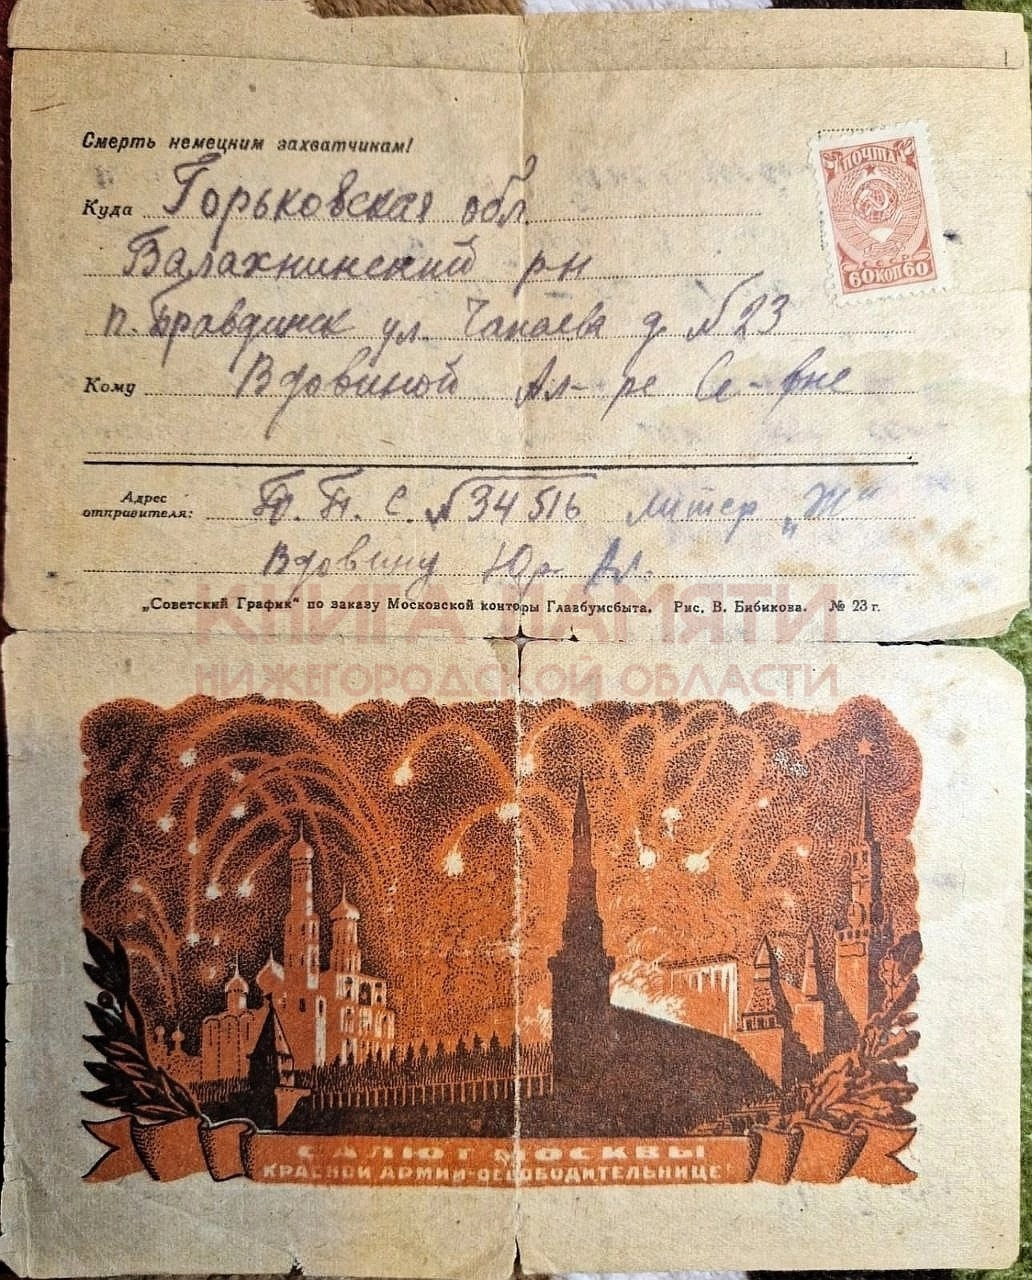 Смерть немецким захватчикам!
ПОЧТА
СССР
60 КОП 60
Куда Горьковская обл
Балахнинский р-н
п. Правдинск ул. Чапаева д. №23
Кому Вдовиной Ал-ре Се-вне
Адрес отправителя: П. П. С. №34516 литер „Ж“
Вдовину Юр. Ал.
„Советский График“ по заказу Московской конторы Главбумсбыта. Рис. В. Бибикова. № 23 г.
КНИГА ПАМЯТИ
НИЖЕГОРОДСКОЙ ОБЛАСТИ
САЛЮТ МОСКВЫ
КРАСНОЙ АРМИИ-ОСВОБОДИТЕЛЬНИЦЕ!